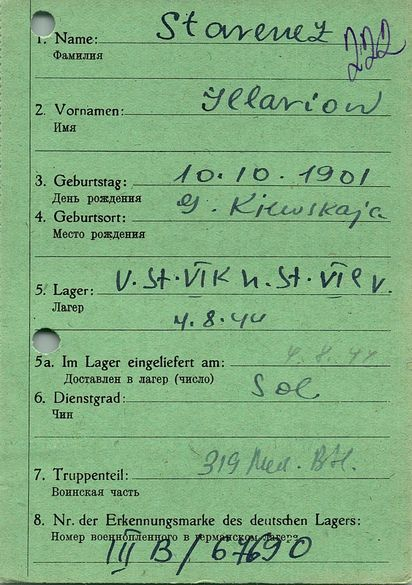 1. Name: Starenez
Фамилия
222
2. Vornamen: Illarion
Имя
3. Geburtstag: 10.10.1901
День рождения
4. Geburtsort: G. Kiewskaja
Место рождения
5. Lager: V. St. VI K n. St. VI C v.
Лагер
4.8.44
5a. Im Lager eingeliefert am: 4.8.44
Доставлен в лагер (число)
6. Dienstgrad: Sol
Чин
7. Truppenteil: 319
Воинская часть
8. Nr. der Erkennungsmarke des deutschen Lagers:
Номер военнопленного в германском лагере
III B / 67690